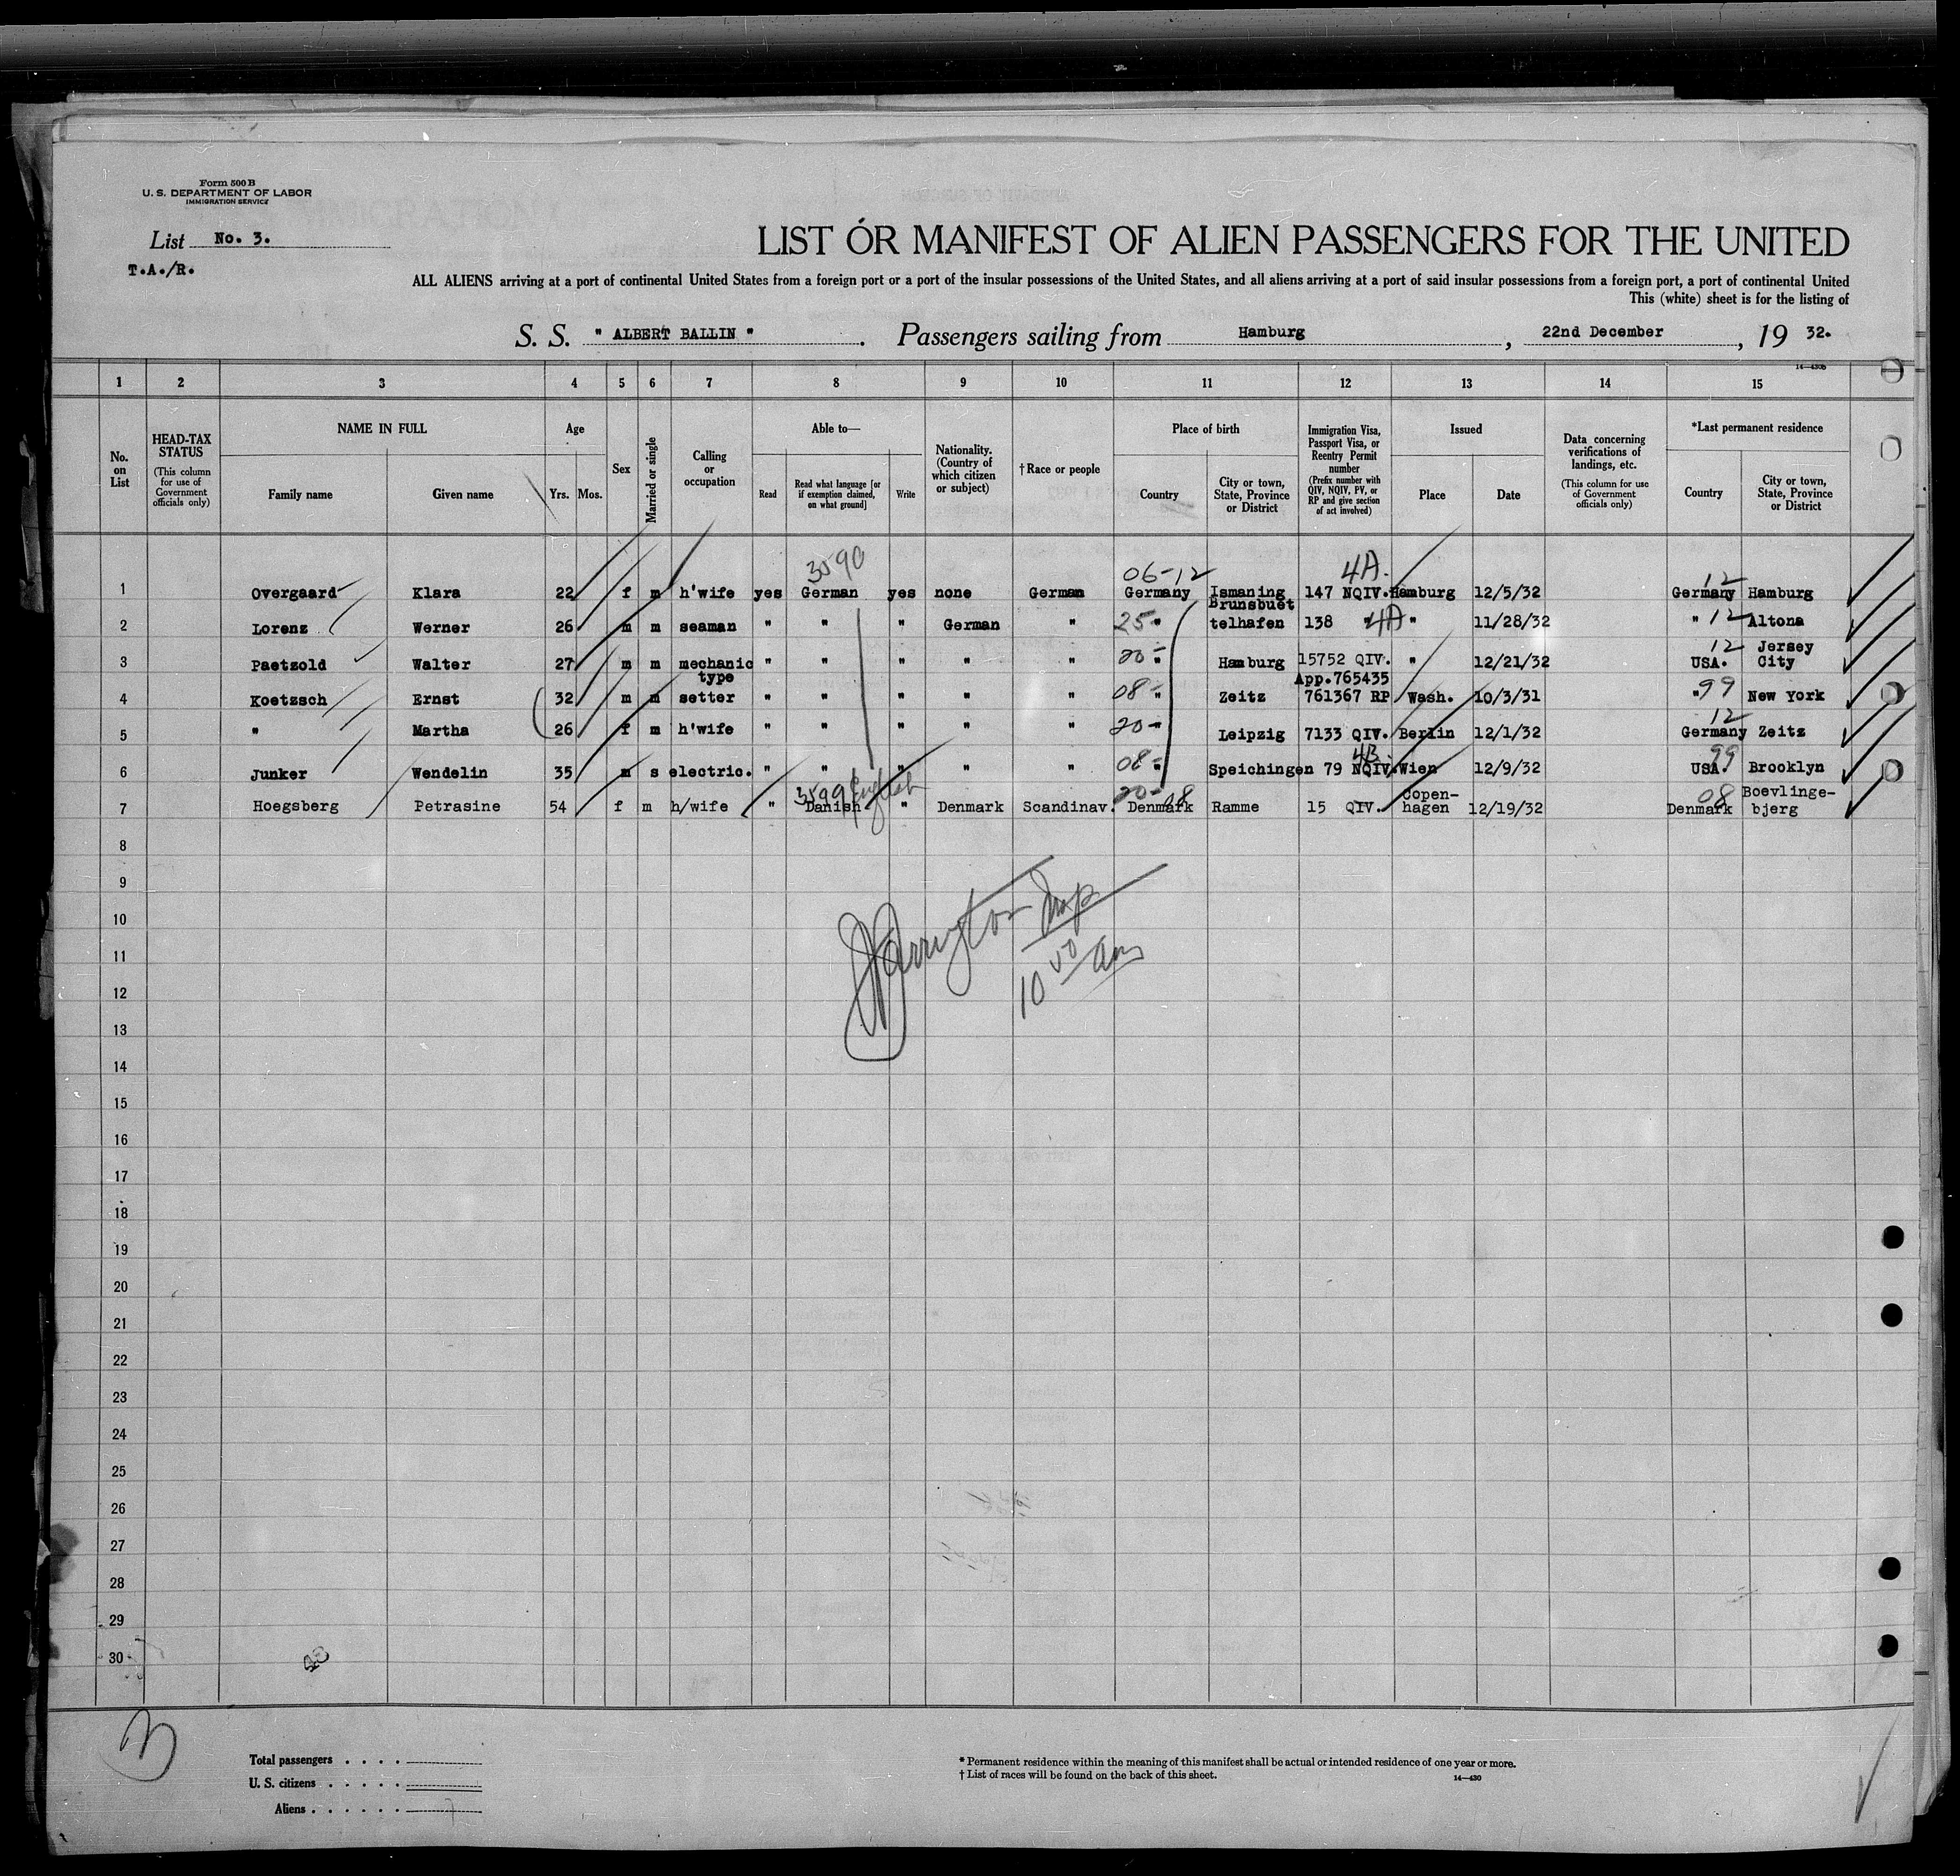 Form 500 B
U. S. DEPARTMENT OF LABOR
IMMIGRATION SERVICE
List No. 3.
T.A./R.
LIST OR MANIFEST OF ALIEN PASSENGERS FOR THE UNITED
ALL ALIENS arriving at a port of continental United States from a foreign port or a port of the insular possessions of the United States, and all aliens arriving at a port of said insular possessions from a foreign port, a port of continental United
This (white) sheet is for the listing of
S. S. " ALBERT BALLIN " . Passengers sailing from Hamburg , 22nd December , 19 32.
14—430b
1 2 3 4 5 6 7 8 9 10 11 12 13 14 15
No. on List
HEAD-TAX STATUS (This column for use of Government officials only)
NAME IN FULL Family name Given name
Age Yrs. Mos.
Sex
Married or single
Calling or occupation
Able to— Read Read what language [or if exemption claimed, on what ground] Write
Nationality. (Country of which citizen or subject)
†Race or people
Place of birth Country City or town, State, Province or District
Immigration Visa, Passport Visa, or Reentry Permit number (Prefix number with QIV, NQIV, PV, or RP and give section of act involved)
Issued Place Date
Data concerning verifications of landings, etc. (This column for use of Government officials only)
*Last permanent residence Country City or town, State, Province or District
3590 06-12 4A. 12
1 Overgaard Klara 22 f m h'wife yes German yes none German Germany Ismaning 147 NQIV. Hamburg 12/5/32 Germany Hamburg
2 Lorenz Werner 26 m m seaman " " " German " 25- " Brunsbuet telhafen 138 " 4A " 11/28/32 " 12 Altona
3 Paetzold Walter 27 m m mechanic " " " " " 20- " Hamburg 15752 QIV. " 12/21/32 12 USA. Jersey City
4 Koetzsch Ernst 32 m m type setter " " " " " 08- " Zeitz App.765435 761367 RP Wash. 10/3/31 " 99 New York
5 " Martha 26 f m h'wife " " " " " 20- " Leipzig 7133 QIV. Berlin 12/1/32 12 Germany Zeitz
6 Junker Wendelin 35 m s electric. " " " " " 08- " Speichingen 79 NQIV. 4B. Wien 12/9/32 99 USA. Brooklyn
7 Hoegsberg Petrasine 54 f m h/wife " 3599 Danish English " Denmark Scandinav. 20-08 Denmark Ramme 15 QIV. Copen-hagen 12/19/32 08 Denmark Boevlinge-bjerg
8
9
10
11
12
13
14
15
16
17
18
19
20
21
22
23
24
25
26
27
28
29
30
10 00 am
Total passengers . . . .
U. S. citizens . . . . .
Aliens . . . . . .
* Permanent residence within the meaning of this manifest shall be actual or intended residence of one year or more.
† List of races will be found on the back of this sheet.
14—430